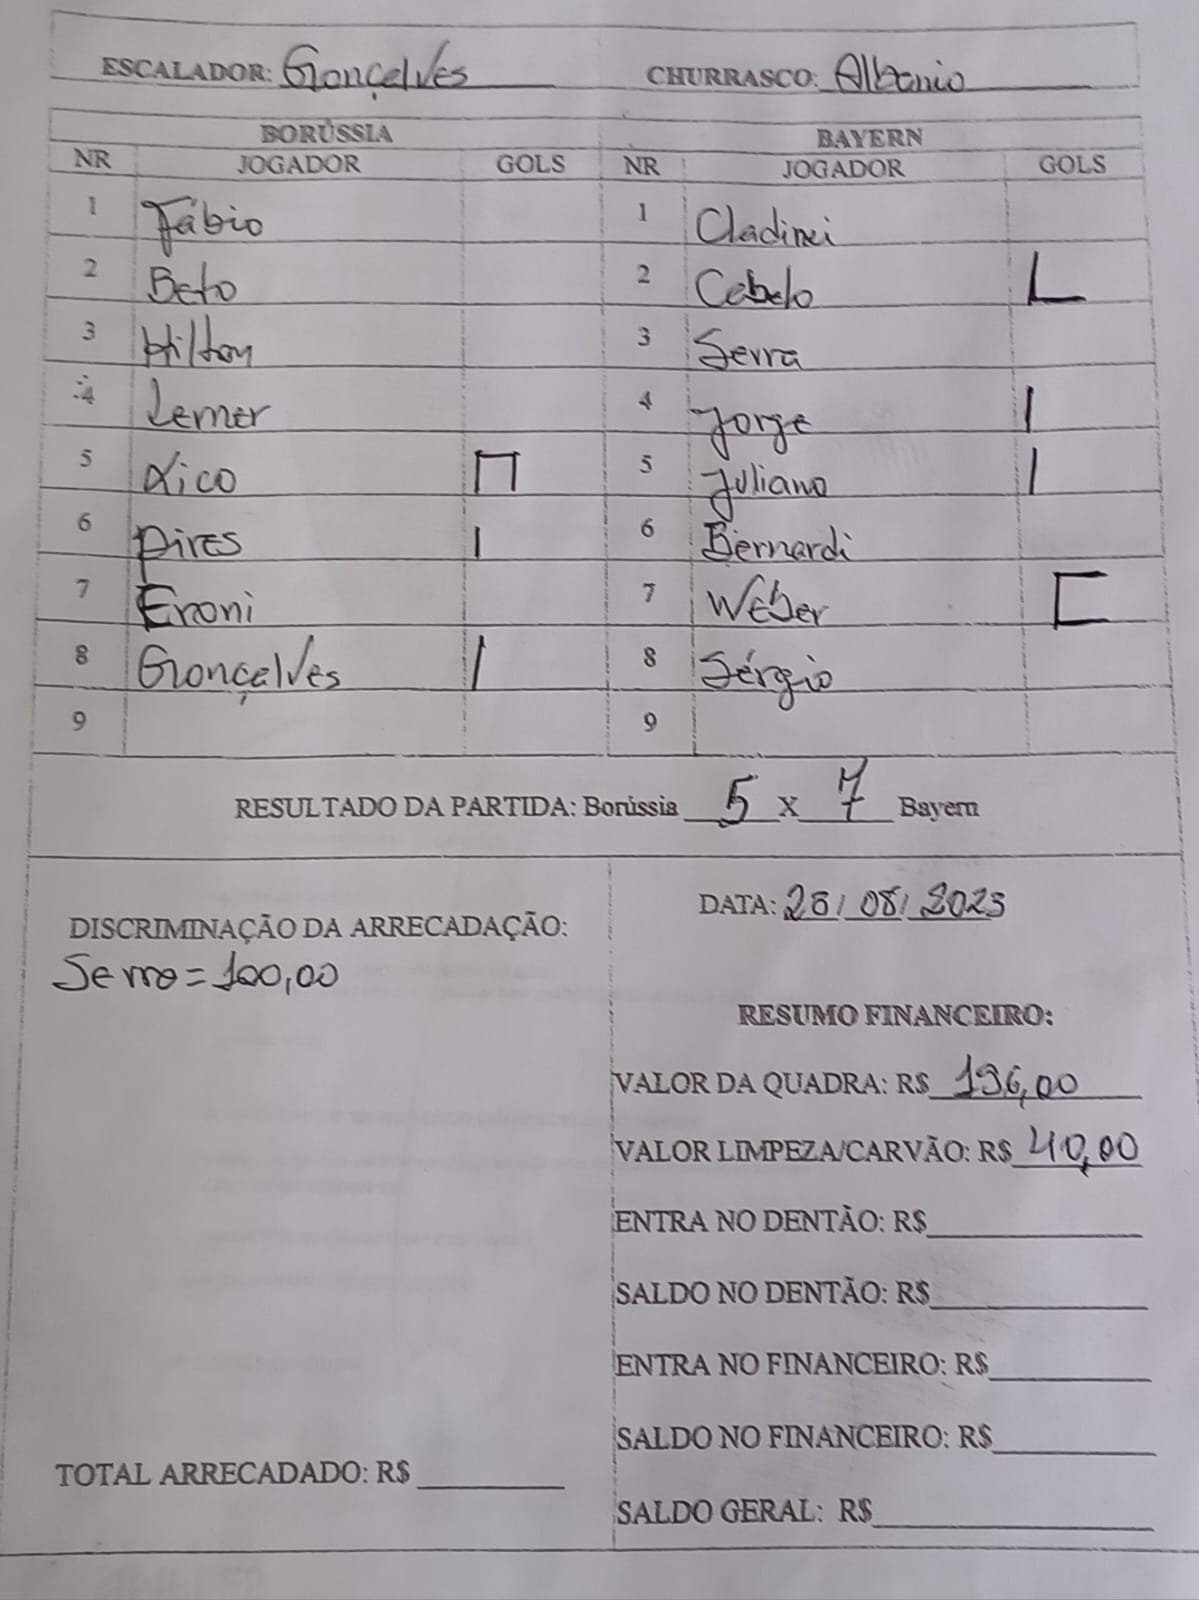 ESCALADOR: Gonçalves CHURRASCO: Albanio
BORÚSSIA BAYERN
NR JOGADOR GOLS NR JOGADOR GOLS
1 Fábio 1 Cladinei
2 Beto 2 Cabelo L
3 Hilton 3 Serra
4 Lemer 4 Jorge |
5 Xico ⊓ 5 Juliano |
6 Pires | 6 Bernardi
7 Eroni 7 Weber ⊏
8 Gonçalves | 8 Sérgio
9 9
RESULTADO DA PARTIDA: Borússia 5 X 7 Bayern
DATA: 28/08/2023
DISCRIMINAÇÃO DA ARRECADAÇÃO:
= 100,00
RESUMO FINANCEIRO:
VALOR DA QUADRA: R$ 196,00
VALOR LIMPEZA/CARVÃO: R$ 40,00
ENTRA NO DENTÃO: R$
SALDO NO DENTÃO: R$
ENTRA NO FINANCEIRO: R$
SALDO NO FINANCEIRO: R$
TOTAL ARRECADADO: R$
SALDO GERAL: R$